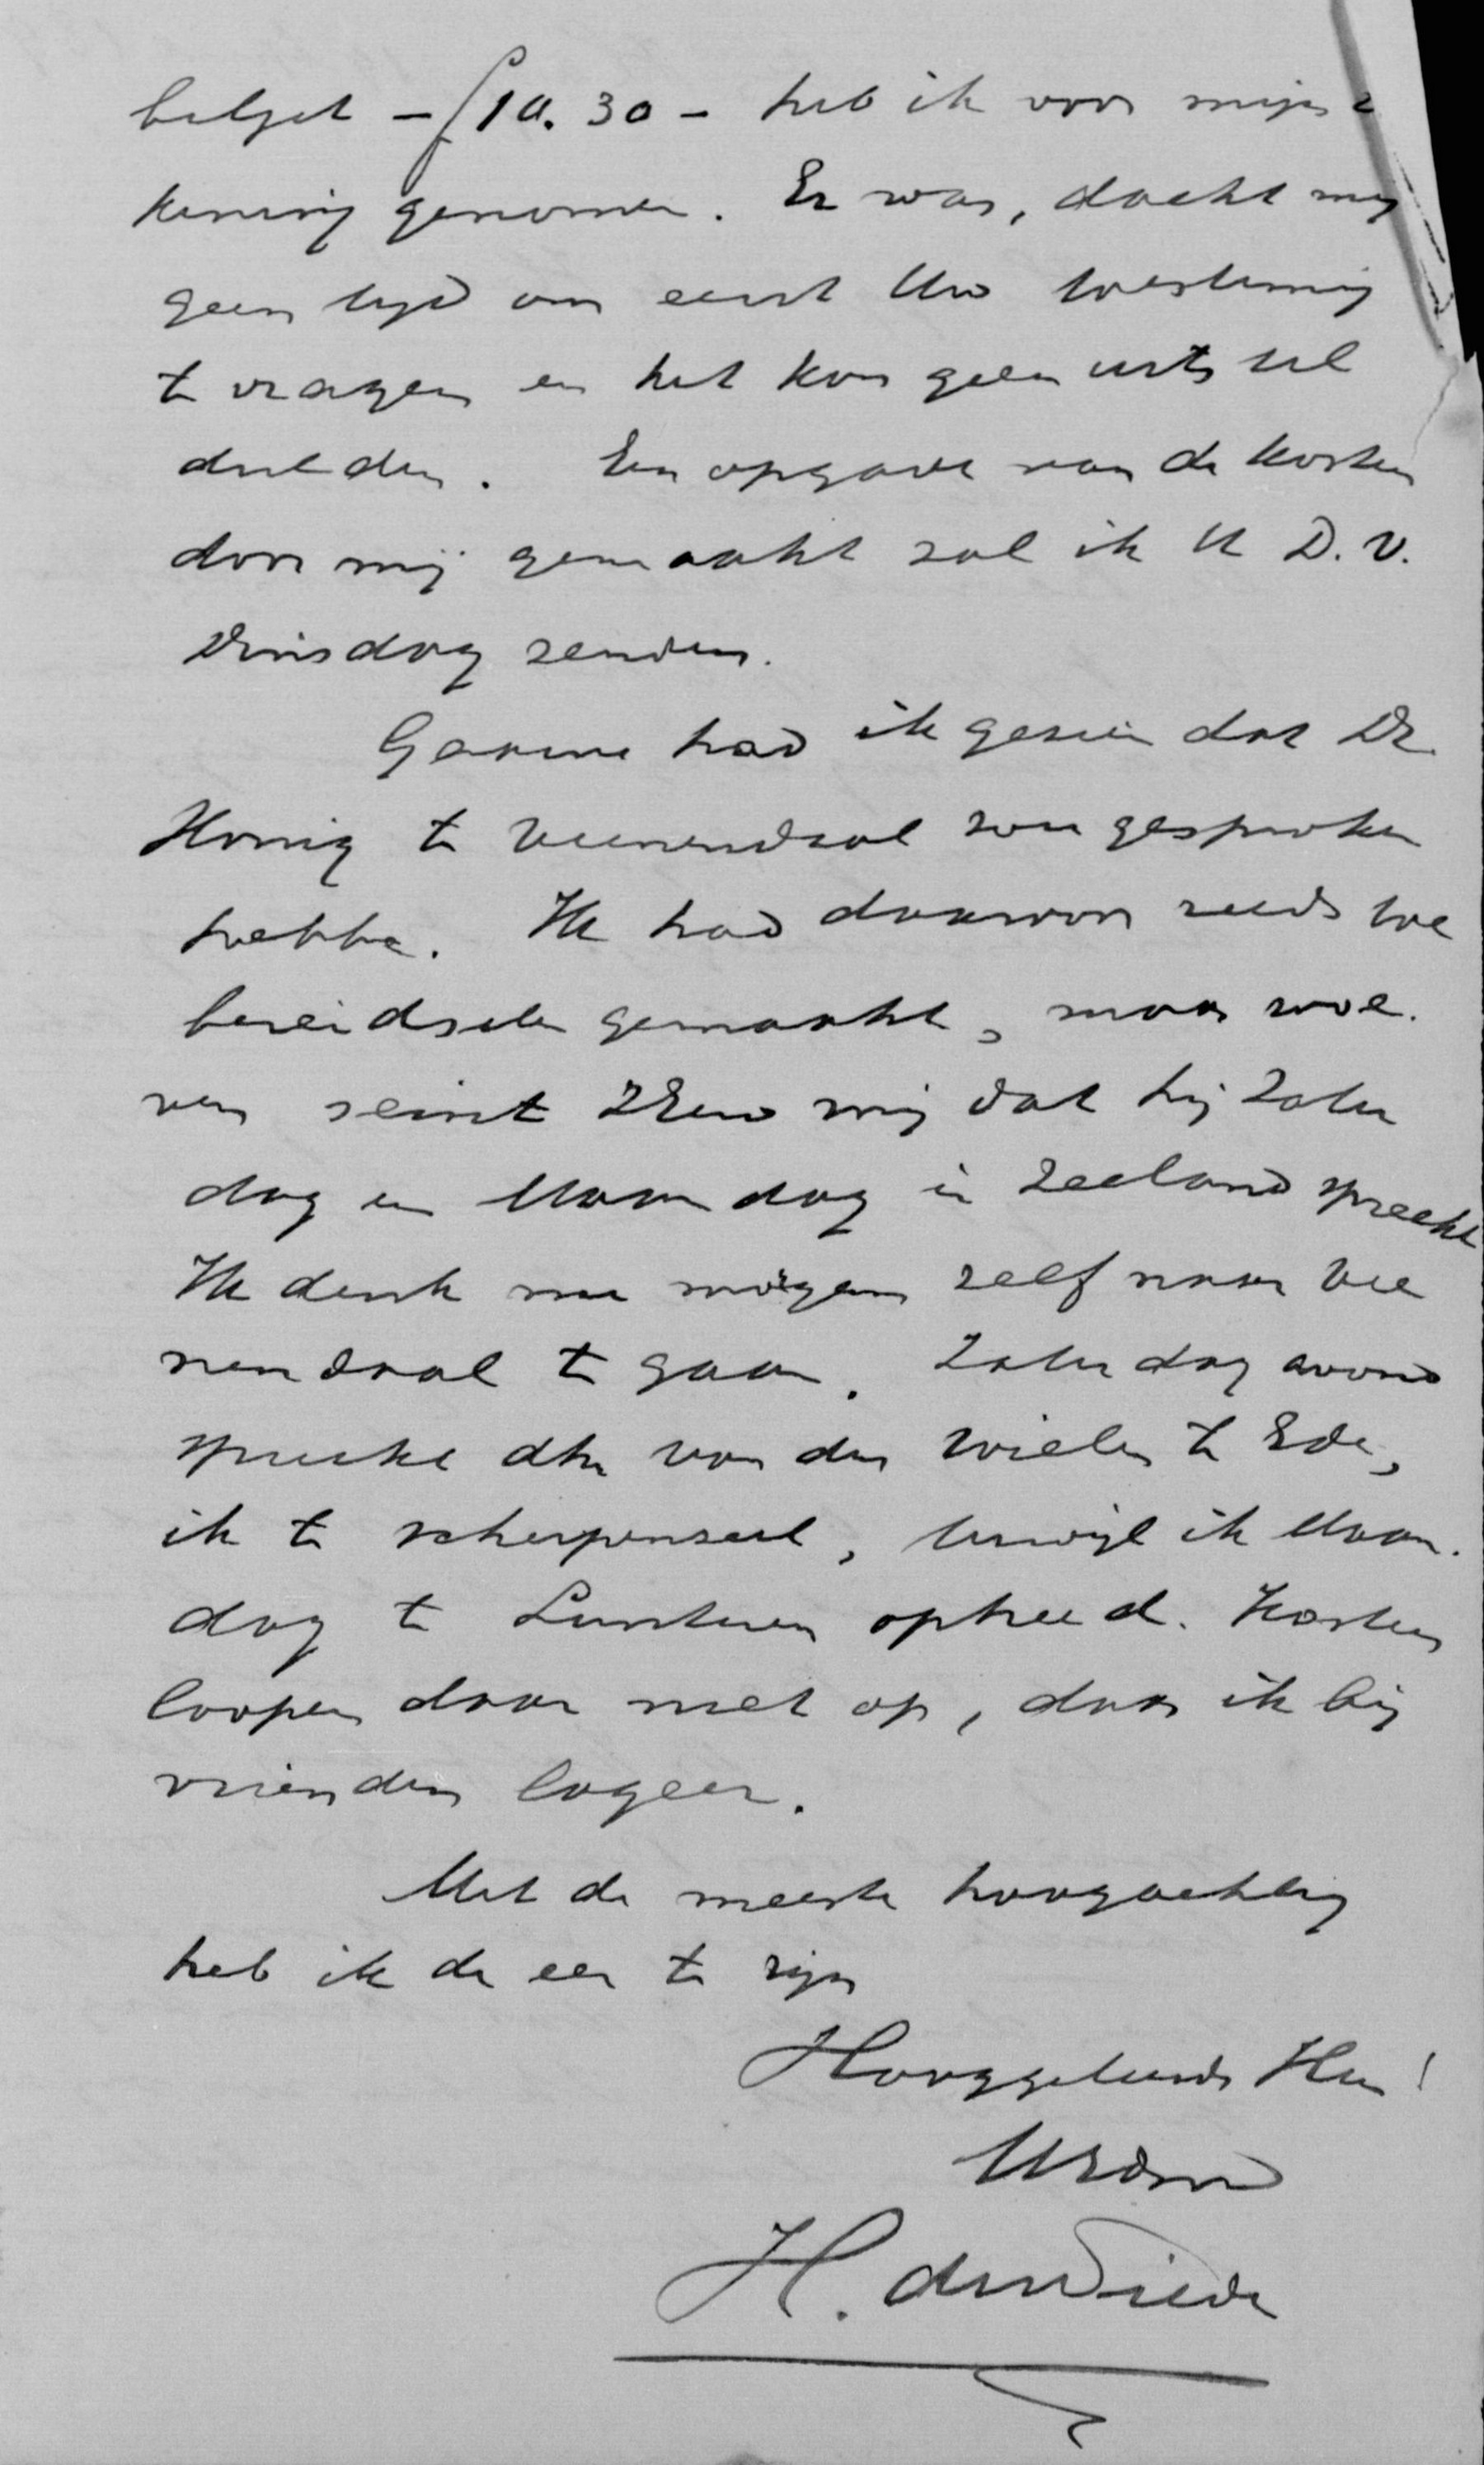 belget - f 10.30 - heb ik voor mijne
kening genomen. Er was, dacht mij
geen tijd om eerst Uw toestemming
te vragen en het kon geen uitstel
dulden. Een opgave van de kosten
door mij gemaakt zal ik U D.V.
Dinsdag zenden.
Gaarne had ik gezien dat Dr.
Honig te Veenendaal zou gesproken
hebbe. Ik had daarvoor reeds toe
bereidselen gemaakt, maar zoo e.
ven seint ZEew mij dat hij Zater
dag en Maandag in Zeeland spreekt
Ik denk nu morgen zelf naar Vee
nendaal te gaan. Zaterdag avond
spreekt dhr van der Wielen te Ede,
ik te Scherpenzeel, terwijl ik Maan.
dag te Lunteren optreed. Kosten
loopen daar niet op, daar ik bij
vrienden logeer.
Met de meeste hoogachting
heb ik de eer te zijn
Hooggeleerde Heer!
UEdw
H.